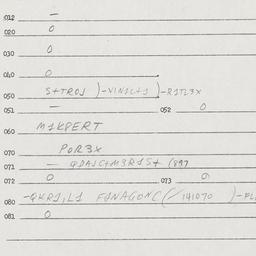 012 —
020 0
030 0
040 0
050 S+TROJ )-VINICHI )-RITL3X
051 — 052 0
060 MIKPERT
070 POR3X
071 — QDAJC+M3RIS+ (897
072 0 073 0
080 -QKRI,LI FINAGONC(/141070 )-FL
081 0